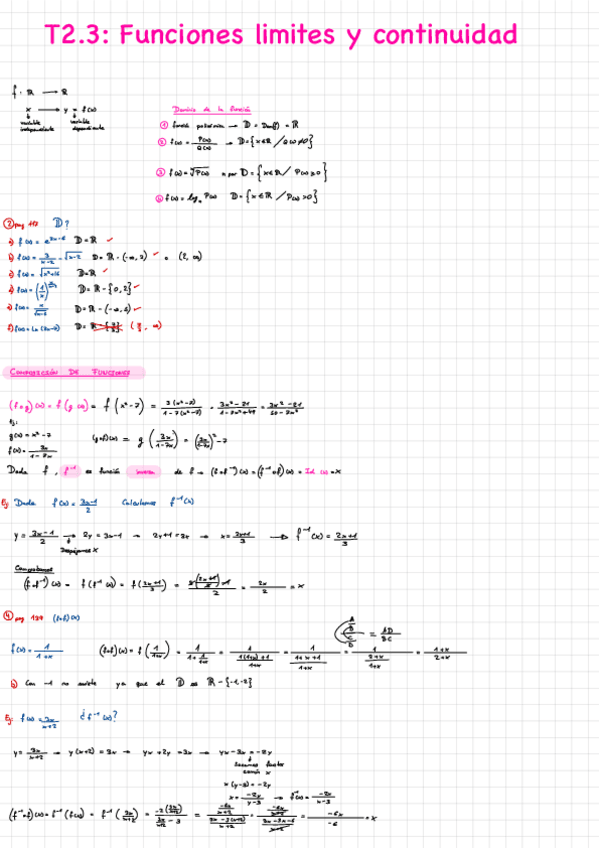 T2.3: Funciones limites y continuidad
f: ℝ → ℝ
x → y = f(x)
variable independiente variable dependiente
Dominio de la función
① función polinómica → D = Dom(f) = ℝ
② f(x) = P(x)/Q(x) → D = {x∈ℝ / Q(x) ≠ 0}
③ f(x) = √P(x) n par D = {x∈ℝ / P(x) ≥ 0}
④ f(x) = logₐ P(x) D = {x∈ℝ / P(x) > 0}
② pag 117 D?
a) D = ℝ ✓
b) f(x) = 3/(x-2) - √(x-2) D = ℝ - (-∞, 2) ✓ o (2, ∞)
c) f(x) = √(x²+16) D = ℝ ✓
D = ℝ - {0, 2} ✓
D = ℝ - (-∞, 2) ✓
COMPOSICIÓN DE FUNCIONES
(f∘g)(x) = f(g(x)) = f(x²-7) = 3(x²-7)/(1-7(x²-7)) = (3x²-21)/(1-7x²+49) = (3x²-21)/(50-7x²)
Ej:
g(x) = x²-7 (g∘f)(x) = g(3x/(1-7x)) = (3x/(1-7x))² - 7
f(x) = 3x/(1-7x)
Dada f, f⁻¹ es función inversa de f → (f∘f⁻¹)(x) = (f⁻¹∘f)(x) = Id(x) = x
Ej: Dada f(x) = (3x-1)/2 Calculamos f⁻¹(x)
y = (3x-1)/2 → 2y = 3x-1 → 2y+1 = 3x → x = (2y+1)/3 → f⁻¹(x) = (2x+1)/3
Despejamos x
Comprobamos
(f∘f⁻¹)(x) = f(f⁻¹(x)) = f((2x+1)/3) = (3((2x+1)/3)-1)/2 = 2x/2 = x
④ pag 127 (f∘f)(x)
(A/B)/(C/D) = AD/BC
f(x) = 1/(1+x) (f∘f)(x) = f(1/(1+x)) = 1/(1+1/(1+x)) = 1/((1(1+x)+1)/(1+x)) = 1/((1+x+1)/(1+x)) = 1/((2+x)/(1+x)) = (1+x)/(2+x)
b) Con -1 no existe ya que el D es ℝ - {-1,-2}
Ej: f(x) = 3x/(x+2) ¿f⁻¹(x)?
y = 3x/(x+2) → y(x+2) = 3x → yx + 2y = 3x → yx - 3x = -2y
Sacamos factor común x
x(y-3) = -2y
x = -2y/(y-3) → f⁻¹(x) = -2x/(x-3)
(f⁻¹∘f)(x) = f⁻¹(f(x)) = f⁻¹(3x/(x+2)) = (-2(3x/(x+2)))/(3x/(x+2) - 3) = (-6x/(x+2))/((3x-3(x+2))/(x+2)) = (-6x/(x+2))/((3x-3x-6)/(x+2)) = -6x/-6 = x